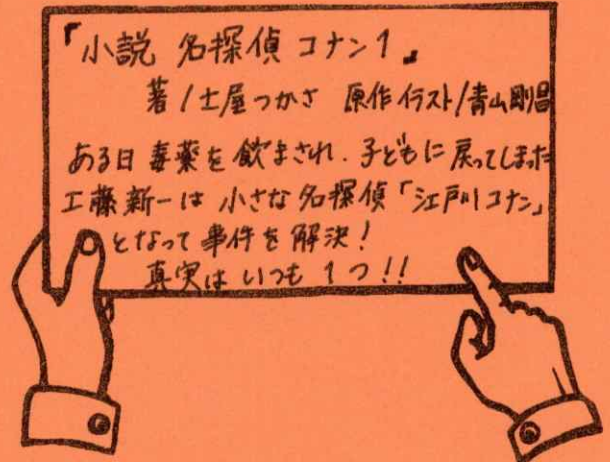 『小説 名探偵コナン1』
著/土屋つかさ 原作イラスト/青山剛昌
ある日毒薬を飲まされ、子どもに戻ってしまった
工藤新一は小さな名探偵「江戸川コナン」
となって事件を解決!
真実はいつも1つ!!